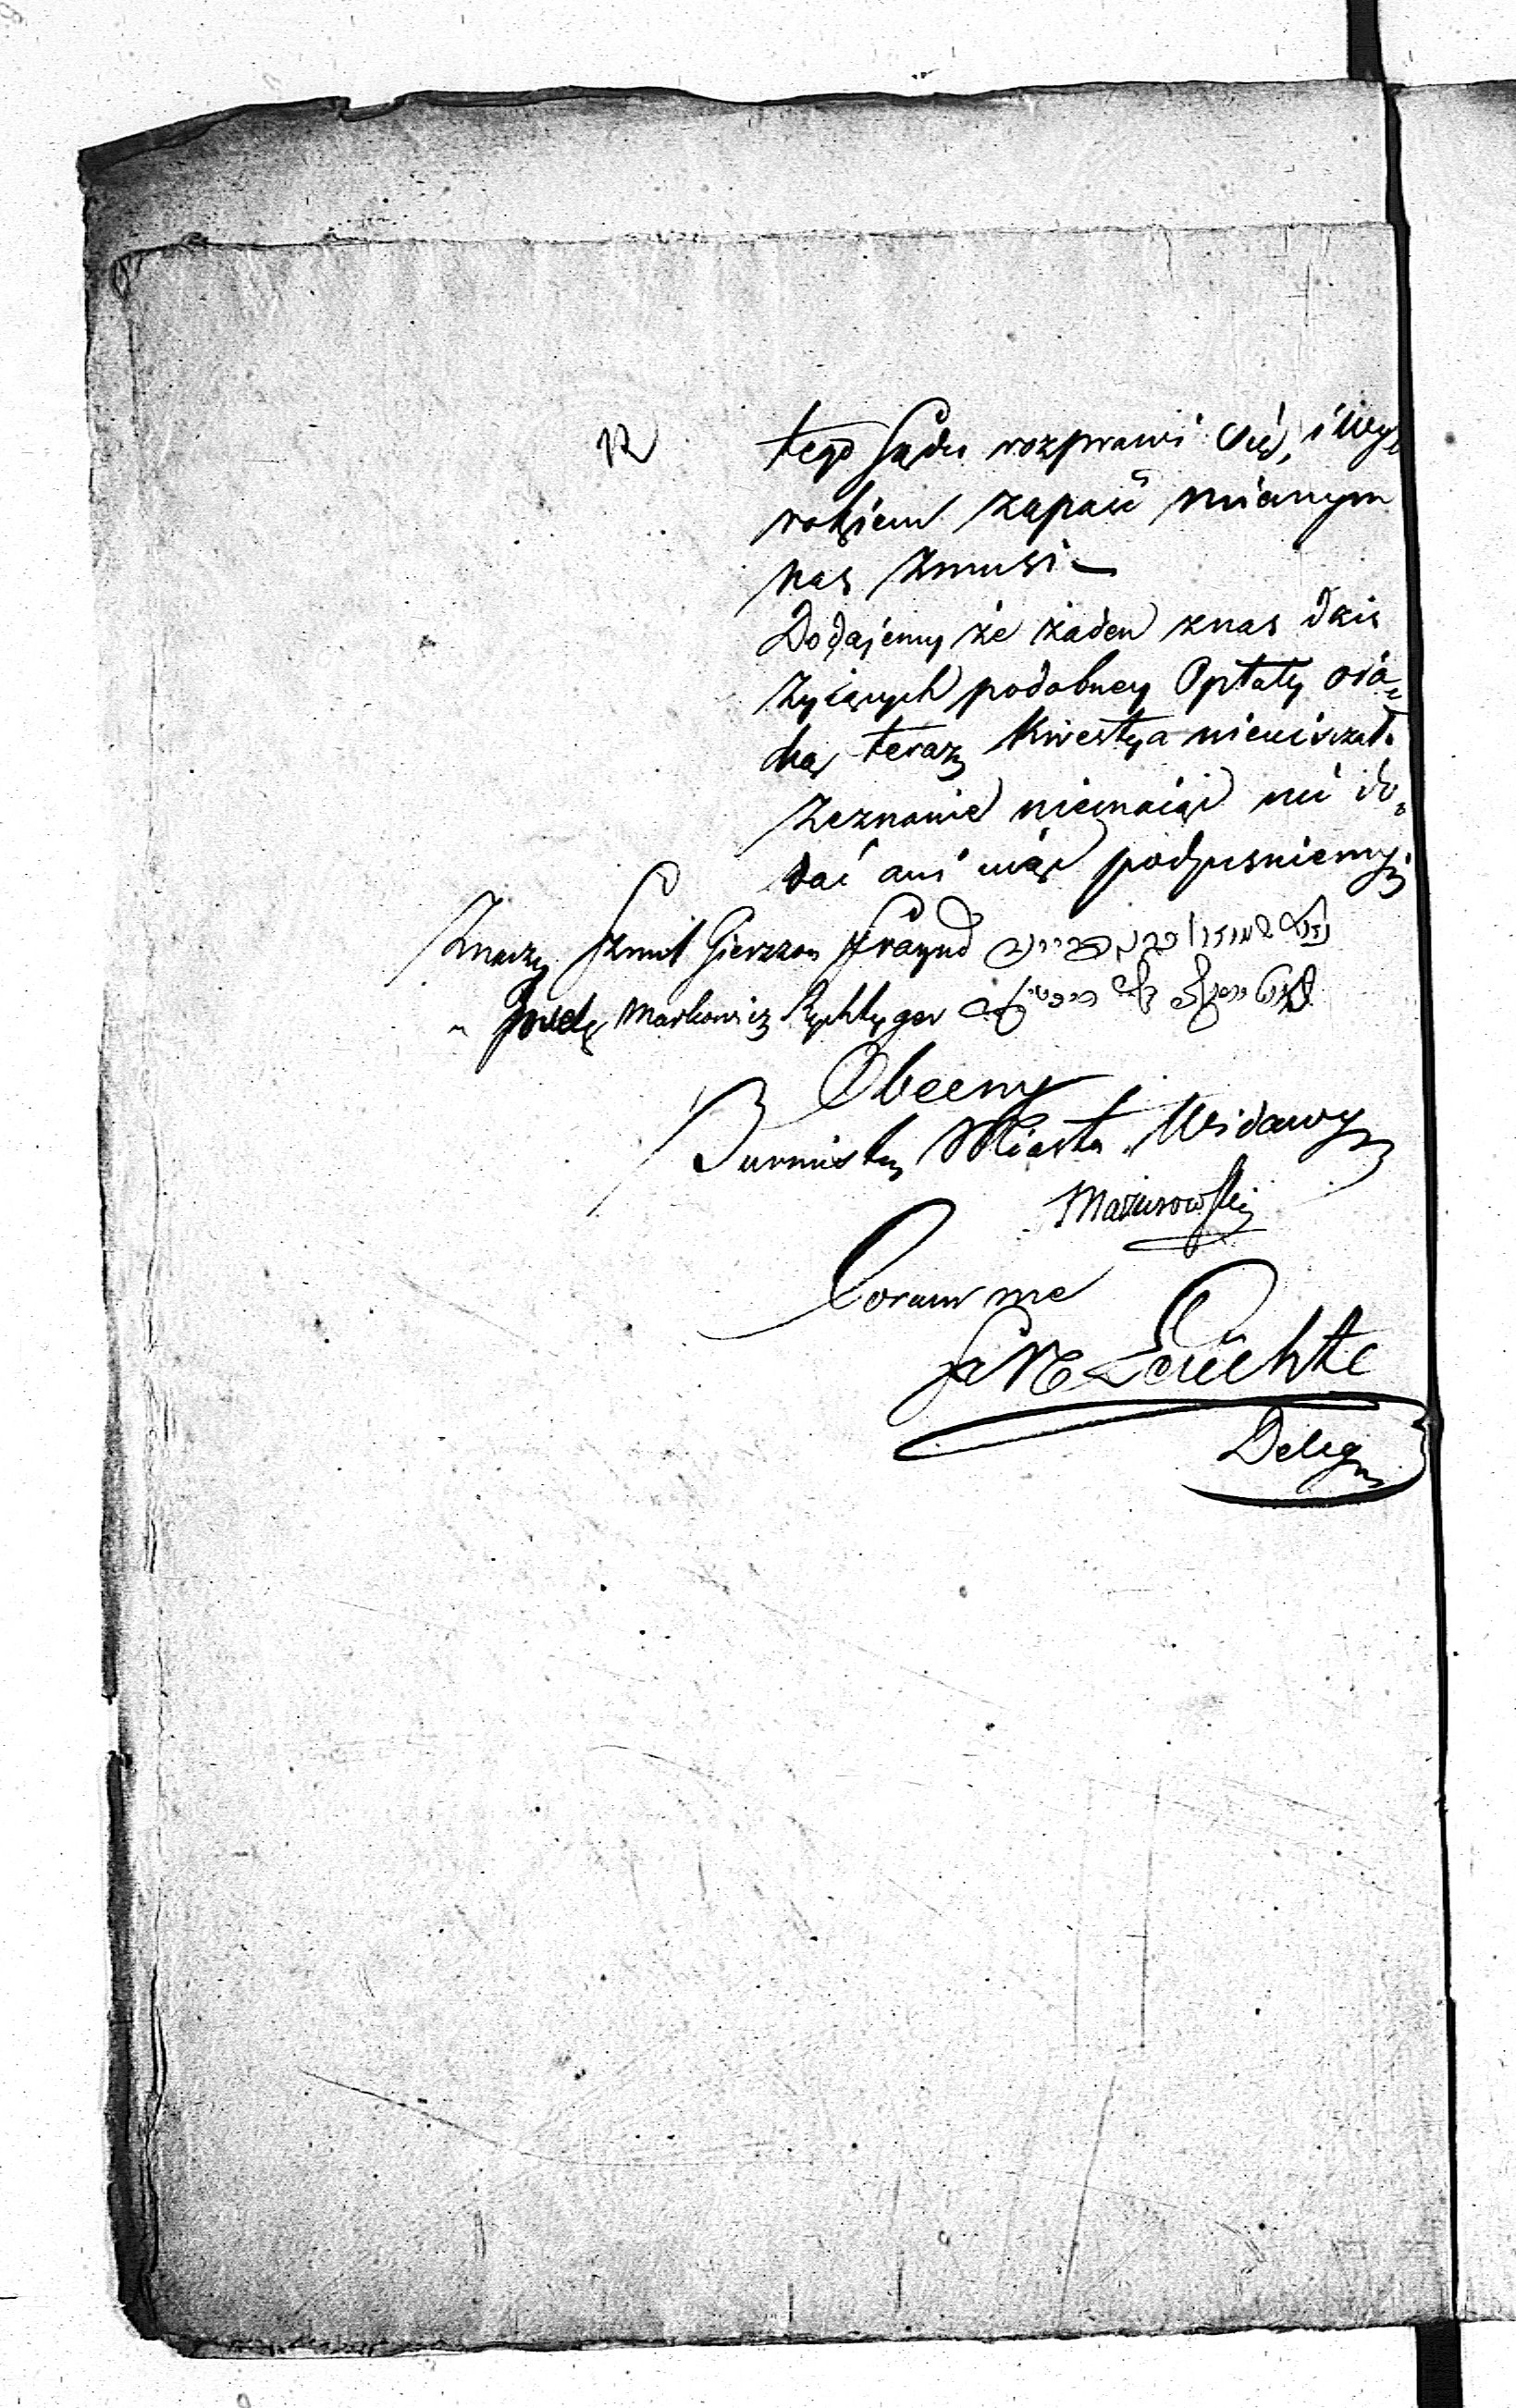 tego Sądu rozprawi się, i wy-
rokiem zapaść mianym
nas zmusi —
Dodajemy że żaden znas dziś
żyjących podobney Opłaty o ia-
ką teraz kwestya nieuiszczał.
Zeznanie niemaiąc nic do-
dać ani uiąć podpisuiemy.
Znaczy Szmul Gierszon Fraynd
" Markowicz Rychtyger
Obecny
Burmistrz Miasta Widawy
Mazurowski
Coram me
Deleg